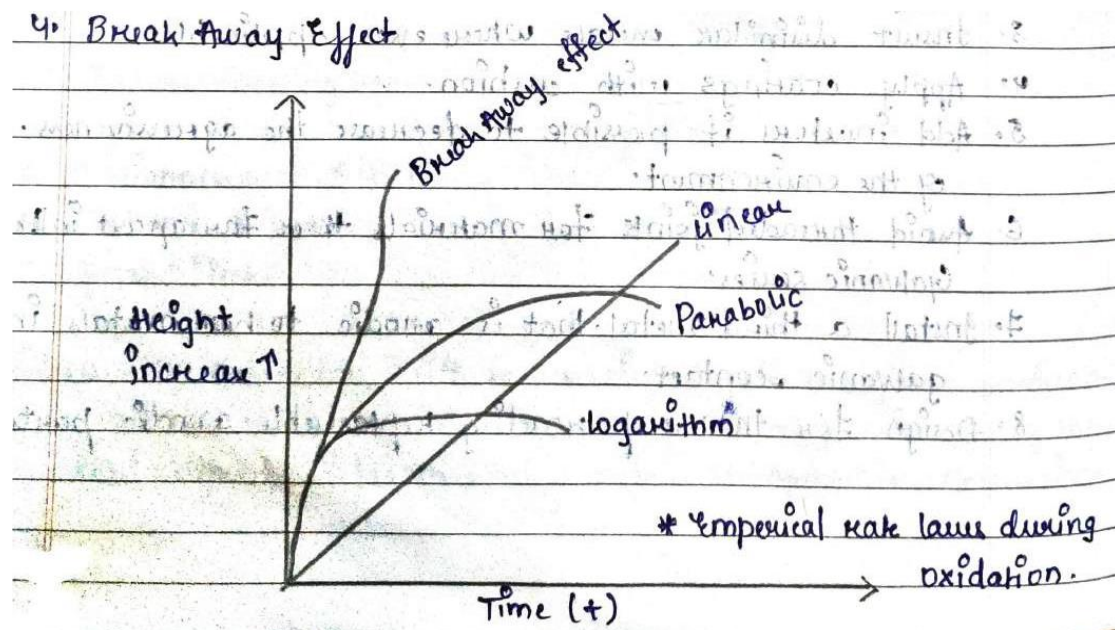 4. Break Away Effect
Break Away effect
linear
Height
increase ↑
Parabolic
logarithm
* Emperical rate laws during
oxidation.
Time (t)